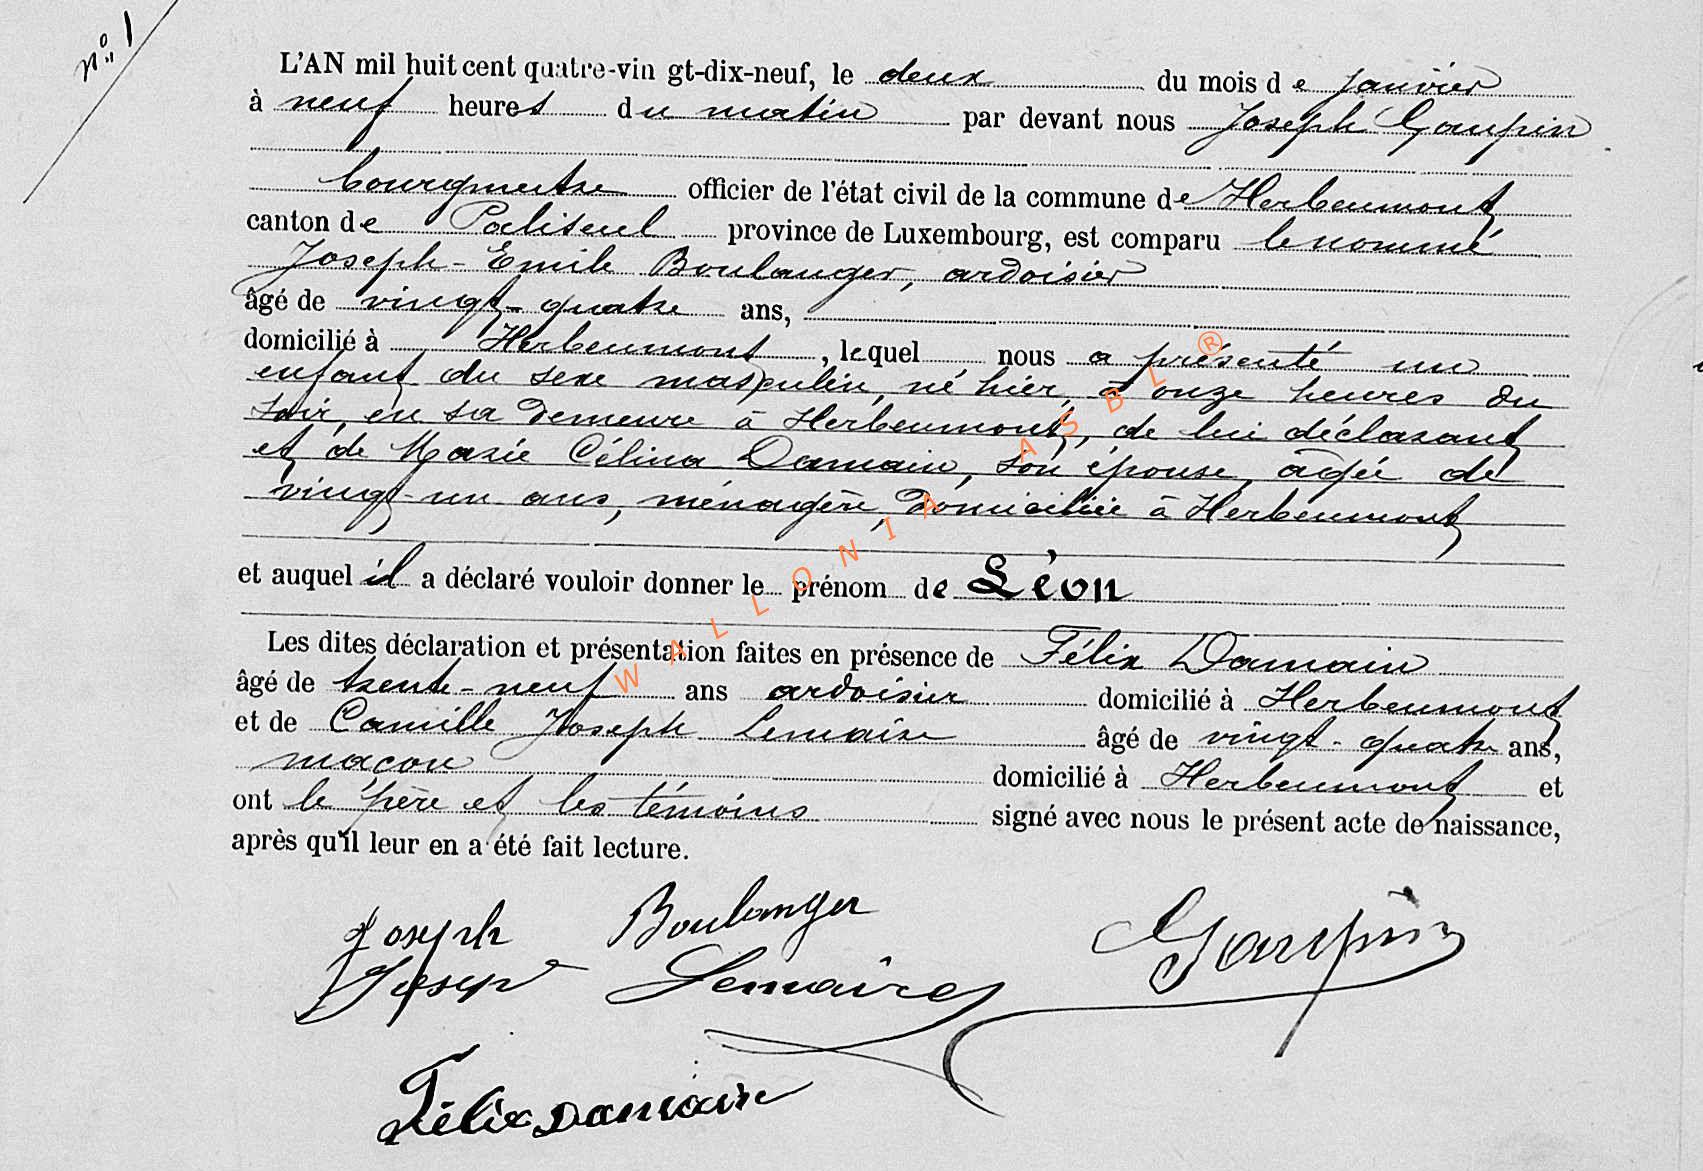 n° 1
L'AN mil huit cent quatre-vin gt-dix-neuf, le deux du mois de janvier
à neuf heures du matin par devant nous Joseph Goupin
bourgmestre officier de l'état civil de la commune de Herbeumont
canton de Paliseul province de Luxembourg, est comparu le nommé
Joseph-Emile Boulanger, ardoisier
âgé de vingt-quatre ans,
domicilié à Herbeumont, lequel nous a présenté un
enfant du sexe masculin, né hier, à onze heures du
soir, en sa demeure à Herbeumont, de lui déclarant
et de Marie Célina Damain, son épouse, agée de
vingt-un ans, ménagère, domiciliée à Herbeumont
et auquel il a déclaré vouloir donner le prénom de Léon
Les dites déclaration et présentation faites en présence de Félix Damain
âgé de trente-neuf ans ardoisier domicilié à Herbeumont
et de Camille Joseph Lemaire âgé de vingt-quatre ans,
maçon domicilié à Herbeumont et
ont le père et les témoins signé avec nous le présent acte de naissance,
après qu'il leur en a été fait lecture.
Joseph Boulanger
Joseph Lemaire
Goupin
Félix Damain
WALLONIA ASBL ®